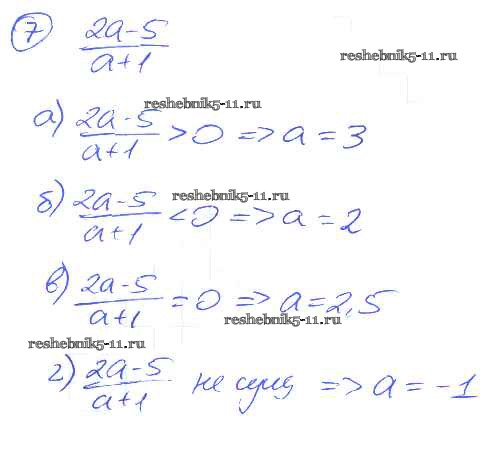 7 (2a-5)/(a+1)
reshebnik5-11.ru
reshebnik5-11.ru
а) (2a-5)/(a+1) > 0 => a = 3
reshebnik5-11.ru
б) (2a-5)/(a+1) < 0 => a = 2
в) (2a-5)/(a+1) = 0 => a = 2,5
reshebnik5-11.ru
reshebnik5-11.ru
г) (2a-5)/(a+1) не сущ => a = -1